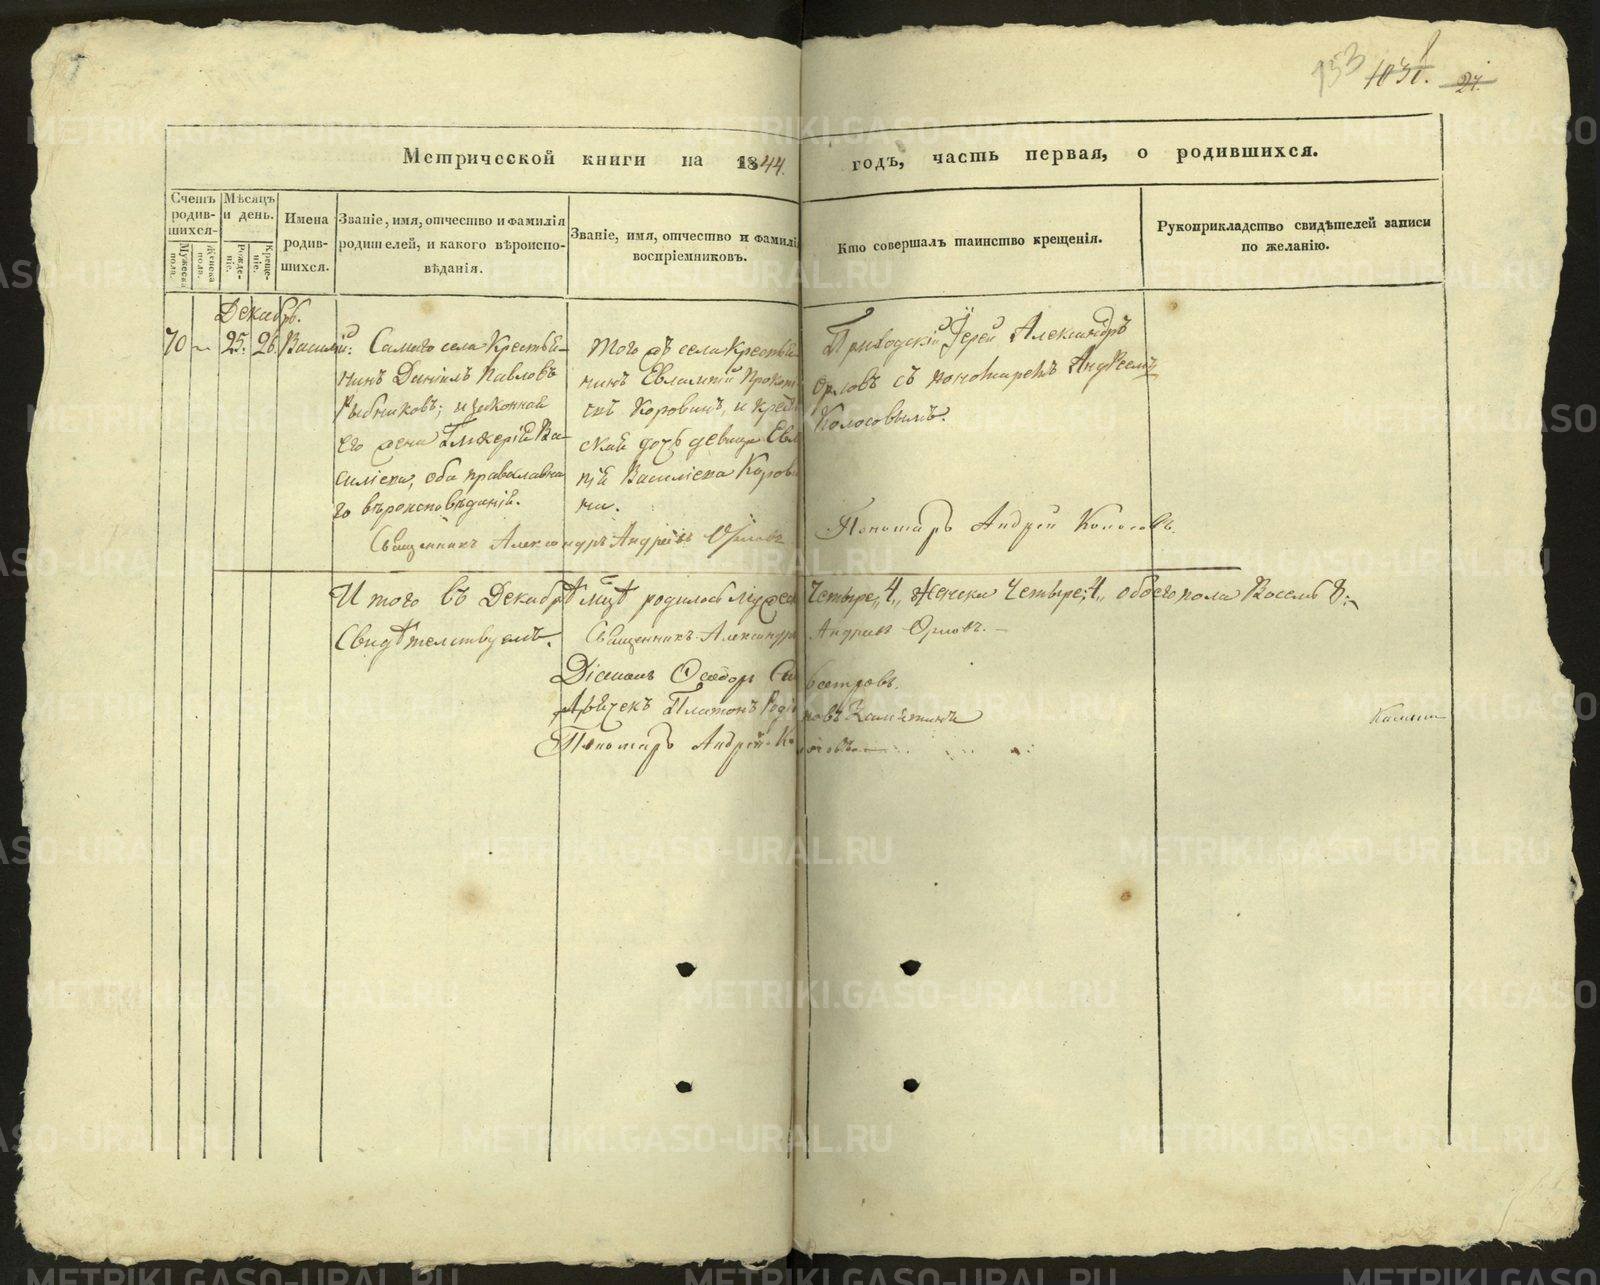 153 1031. 24.
Метрической книги на 1844. годъ, часть первая, о родившихся.
Счетъ родив-шихся.
Мужеска пола.
Женска пола.
Мѣсяцъ и день.
Рожде-ніе.
Креще-ніе.
Имена родив-шихся.
Званіе, имя, отчество и фамилія
родителей, и какого вѣроиспо-
вѣданія.
Званіе, имя, отчество и фамилія
воспріемниковъ.
Кто совершалъ таинство крещенія.
Рукоприкладство свидѣтелей записи
по желанію.
Декабрь.
70 25. 26. Василій:
Самаго села Крестья-
нинъ Даніилъ Павловъ
Рыбниковъ; и законная
его жена Гликерія Ва-
силіева, оба православна-
го вѣроисповѣданія.
Того жъ села Крестья
нинъ Евлампій Прокоп
евъ Коровинъ, и Крест
ская дочь девица Евл
пія Василіева Корови
на.
Приходскій Іерей Александръ
Орловъ съ пономаремъ Андреемъ
Колосовымъ.
Священникъ Александръ Андреевъ Орловъ
Пономарь Андрей Колосовъ.
Итого въ Декабрѣ мцѣ родилось Мужеска Четыре, 4, Женска Четыре, 4, обоего пола Восемь 8.
Свидѣтелствуемъ. Священникъ Александръ Андреевъ Орловъ.
Діаконъ Ѳеодоръ
Дьячекъ Платонъ
Пономарь Андрей Колосовъ
METRIKI.GASO-URAL.RU